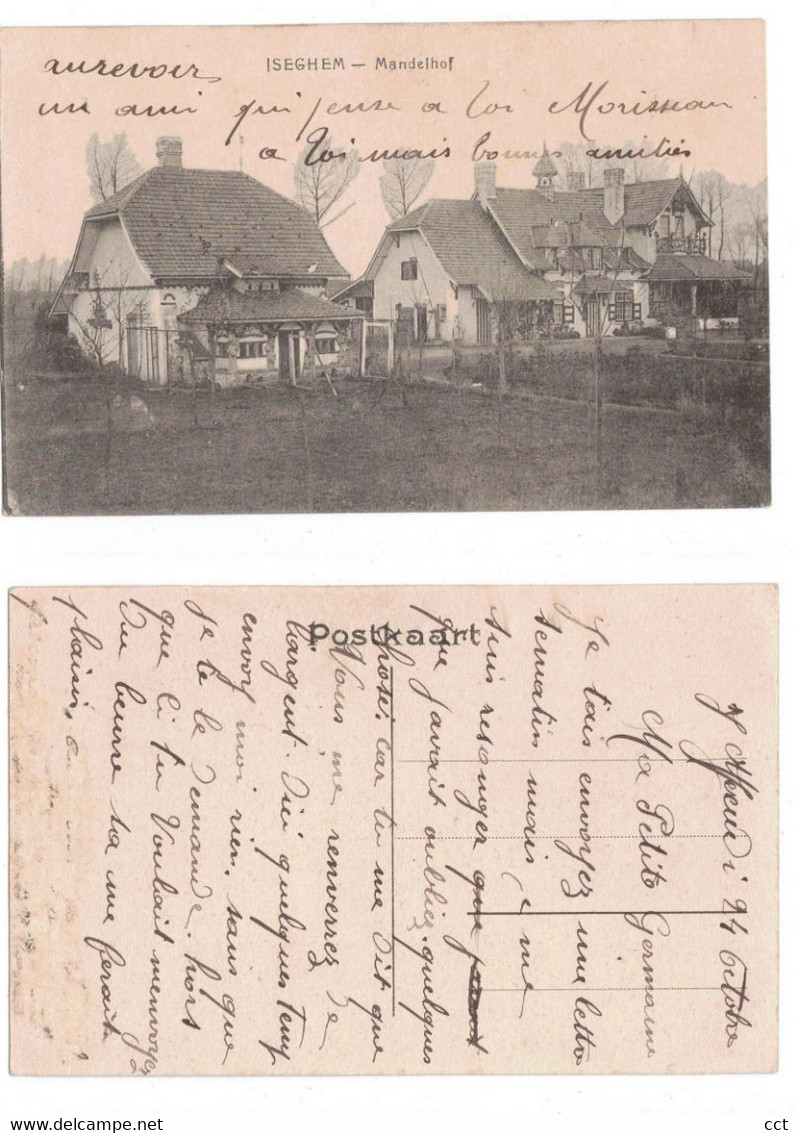 ISEGHEM — Mandelhof
aurevoir
un ami qui pense a toi Morisseau
a toi mais bonnes amitiés
Postkaart
Jeudi 24 Octobre
Ma Petite Germaine
Je tais envoyez une lettre
sematin mais je me
suis resonger que
que javait oubliez quelques
chose. car tu me dit que
Vous me renverrez de
largent. Dici quelques temp
envoy moi rien. sans que
je te le demande. hors
que si tu Voulait menvoyez
Du beurre sa me ferait
plaisir,
Te koop op Delcampe
cct